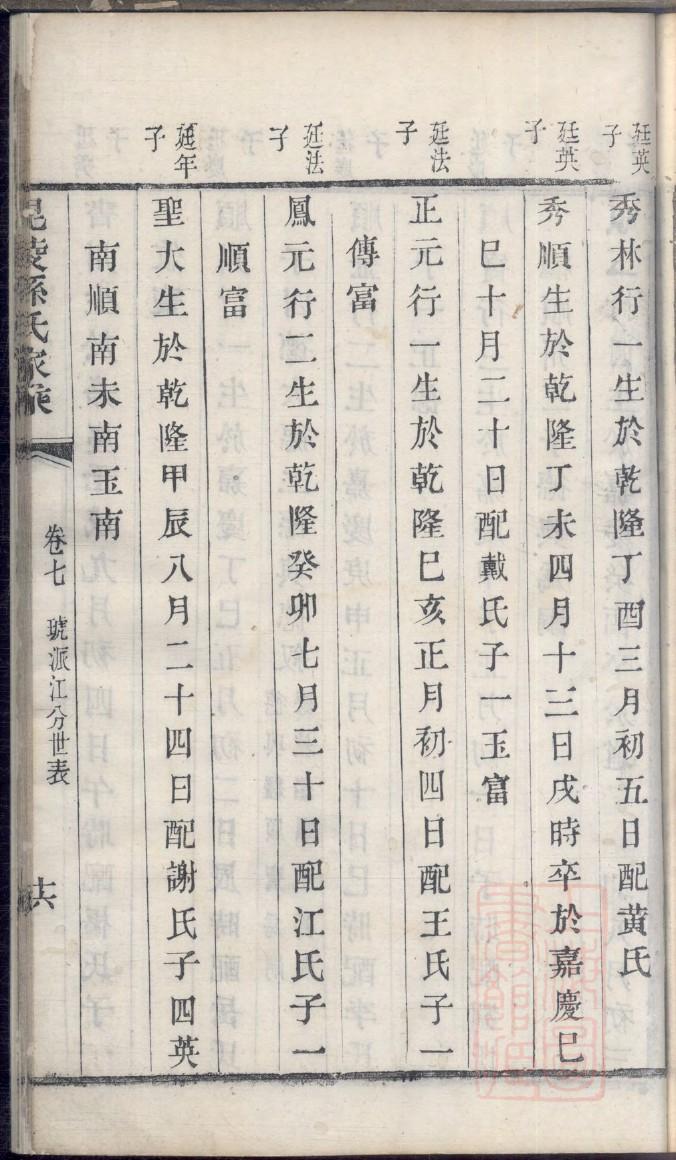 廷英子
秀林行一生於乾隆丁酉三月初五日配黄氏
廷英子
秀順生於乾隆丁未四月十三日戌時卒於嘉慶已
巳十月二十日配戴氏子一玉富
廷法子
正元行一生於乾隆巳亥正月初四日配王氏子一
傳富
廷法子
鳳元行二生於乾隆癸卯七月三十日配江氏子一
順富
廷年子
聖大生於乾隆甲辰八月二十四日配謝氏子四英
南順南未南玉南
毘陵孫氏家乘
卷七 琥派江分世表
十六